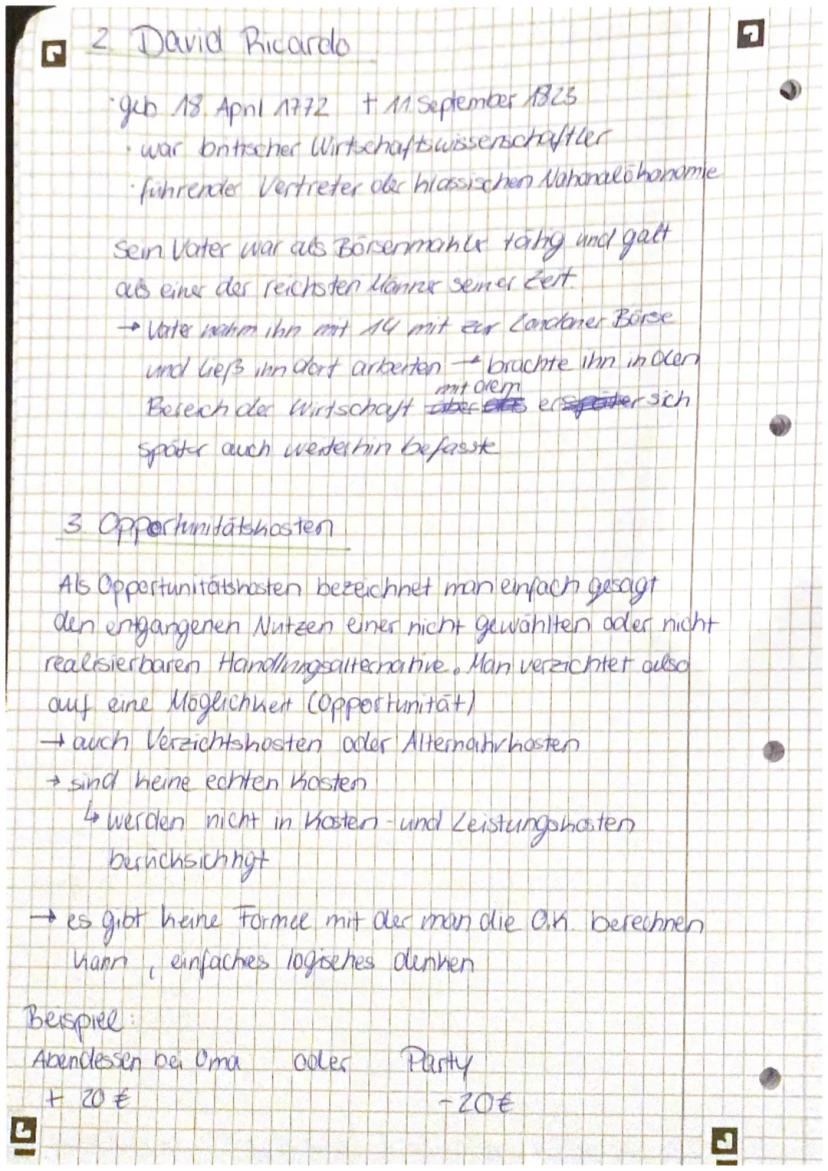 2. David Ricardo
· geb 18 April 1772 † 11 September 1823
· war britischer Wirtschaftswissenschaftler
· führender Vertreter der klassischen Nationalökonomie
Sein Vater war als Börsenmakler tätig und galt
als einer der reichsten Männer seiner Zeit
→ Vater nahm ihn mit 14 mit zur Londoner Börse
und ließ ihn dort arbeiten → brachte ihn in den
mit dem
Bereich der Wirtschaft er sich
später auch weiterhin befasste
3. Opportunitätskosten
Als Opportunitätskosten bezeichnet man einfach gesagt
den entgangenen Nutzen einer nicht gewählten oder nicht
realisierbaren Handlungsalternative. Man verzichtet also
auf eine Möglichkeit (Opportunität)
→ auch Verzichtskosten oder Alternativkosten
→ sind keine echten Kosten
↳ werden nicht in Kosten- und Leistungskosten
berücksichtigt
→ es gibt keine Formel mit der man die O.K. berechnen
kann, einfaches logisches denken
Beispiel:
Abendessen bei Oma oder Party
+ 20 € -20€